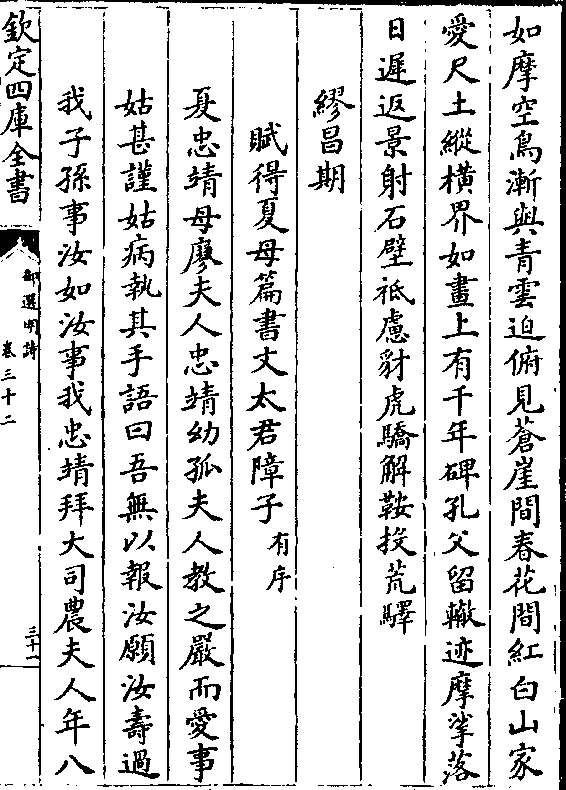 如摩空鳥漸與青雲迫俯見蒼崖間春花間紅白山家
愛尺土縱横界如畫上有千年碑孔父留轍迹摩挲落
日遲返景射石壁祗慮豺虎驕解鞍投荒驛
繆昌期
賦得夏母篇書文太君障子有序
夏忠靖母廖夫人忠靖幼孤夫人教之嚴而愛事
姑甚謹姑病執其手語曰吾無以報汝願汝壽過
我子孫事汝如汝事我忠靖拜大司農夫人年八
欽定四庫全書
御選明詩
卷三十二
三十一